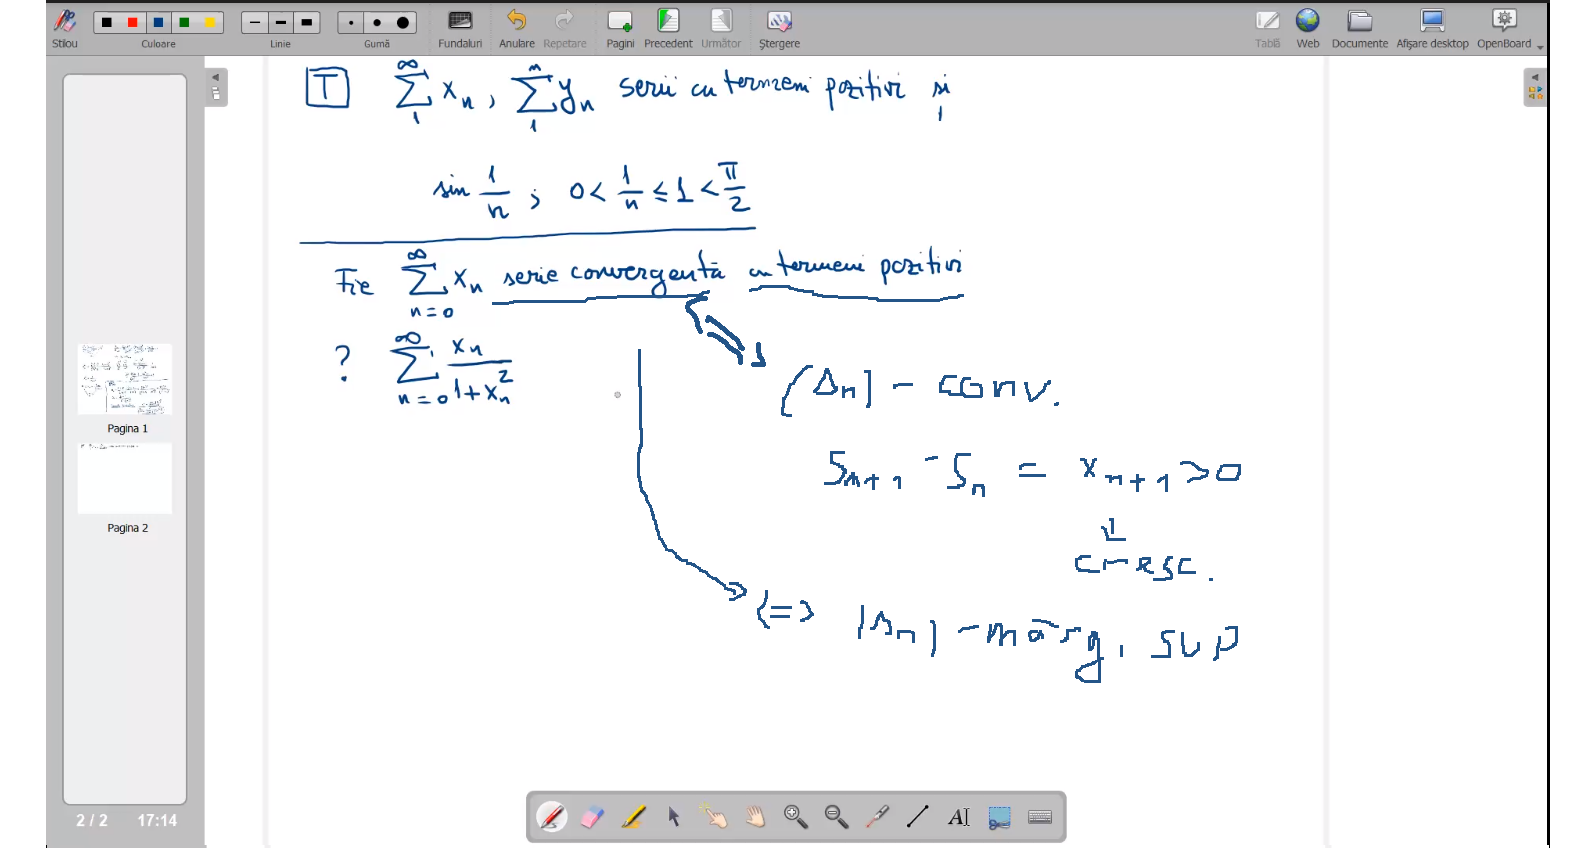 Stilou Culoare Linie Gumă Fundaluri Anulare Repetare Pagini Precedent Următor Ștergere Tablă Web Documente Afișare desktop OpenBoard
T ∑_1^∞ x_n, ∑_1^n y_n serii cu termeni pozitivi și
sin 1/n ; 0 < 1/n ≤ 1 < π/2
Fie ∑_{n=0}^∞ x_n serie convergentă cu termeni pozitivi
? ∑_{n=0}^∞ x_n/(1+x_n^2)
(s_n) - conv.
S_{n+1} - S_n = x_{n+1} > 0
⇓
cresc.
⟨=⟩ (s_n) - mărg. sup
Pagina 1
Pagina 2
2 / 2 17:14
AI